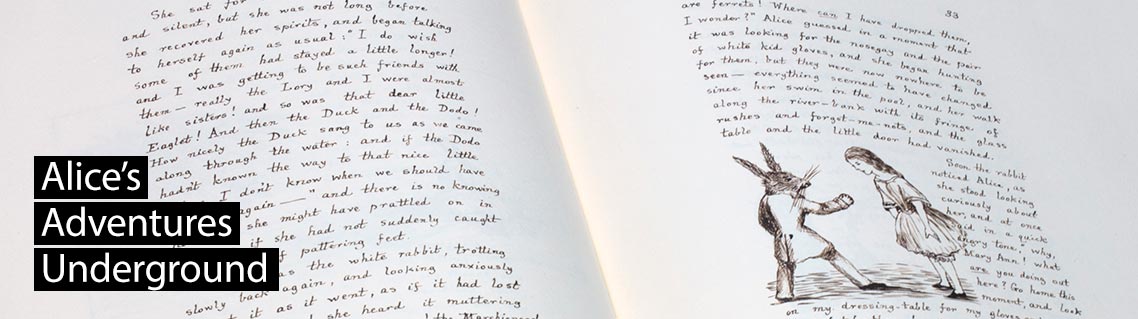 She sat for
and silent, but she was not long before
she recovered her spirits, and began talking
to herself again as usual: "I do wish
some of them had stayed a little longer!
and I was getting to be such friends with
them — really the Lory and I were almost
like sisters! and so was that dear little
Eaglet! And then the Duck and the Dodo!
How nicely the Duck sang to us as we came
along through the water: and if the Dodo
hadn't known the way to that nice little
I don't know when we should have
again —" and there is no knowing
she might have prattled on in
if she had not suddenly caught
pattering feet.
the white rabbit, trotting
slowly back again, and looking anxiously
it as it went, as if it had lost
she heard it muttering
the Marchioness
33
are ferrets! Where can I have dropped them,
I wonder?" Alice guessed in a moment that
it was looking for the nosegay and the pair
of white kid gloves, and she began hunting
for them, but they were now nowhere to be
seen — everything seemed to have changed
since her swim in the pool, and her walk
along the river-bank with its fringe of
rushes and forget-me-nots, and the glass
table and the little door had vanished.
Soon the rabbit
noticed Alice, as
she stood looking
curiously about
her, and at once
said in a quick
angry tone, "why,
Mary Ann! what
are you doing out
here? Go home this
moment, and look
on my dressing-table for my gloves
Alice's
Adventures
Underground